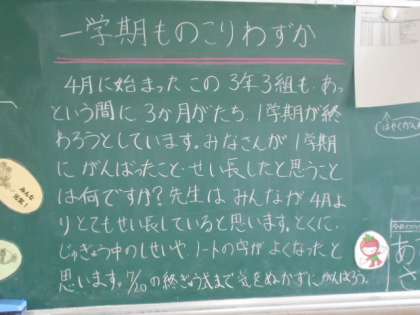 一学期ものこりわずか
4月に始まったこの3年3組も、あっ
という間に3か月がたち、1学期が終
わろうとしています。みなさんが1学期
に がんばったこと・せい長したと思うこと
は何ですか?先生は みんなが4月よ
りとてもせい長していると思います。とくに、
じゅぎょう中のしせいや ノートの字が よくなったと
思います。7/20の終ぎょう式まで気をぬかずにがんばろう。
みんな
元気!
はやくかんが
あ
さ